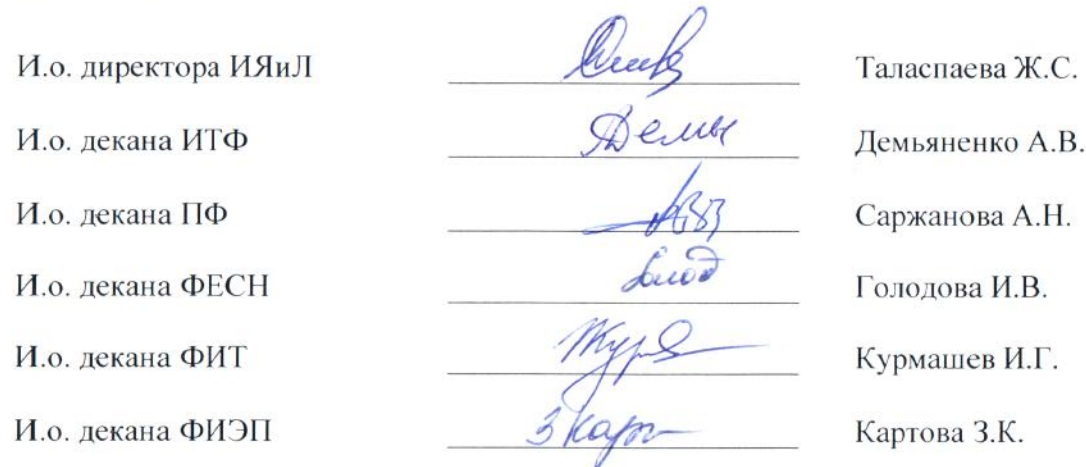 И.о. директора ИЯиЛ Таласпаева Ж.С.
И.о. декана ИТФ Демьяненко А.В.
И.о. декана ПФ Саржанова А.Н.
И.о. декана ФЕСН Голодова И.В.
И.о. декана ФИТ Курмашев И.Г.
И.о. декана ФИЭП Картова З.К.